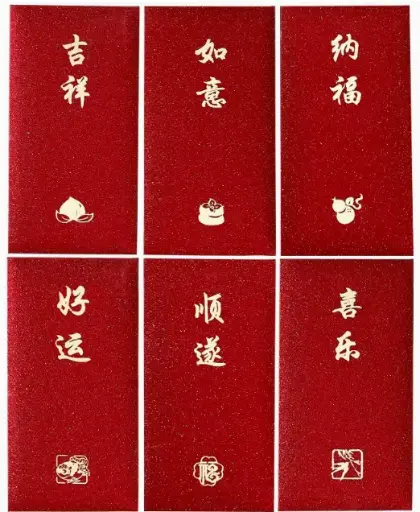 吉祥
如意
纳福
好运
顺遂
喜乐